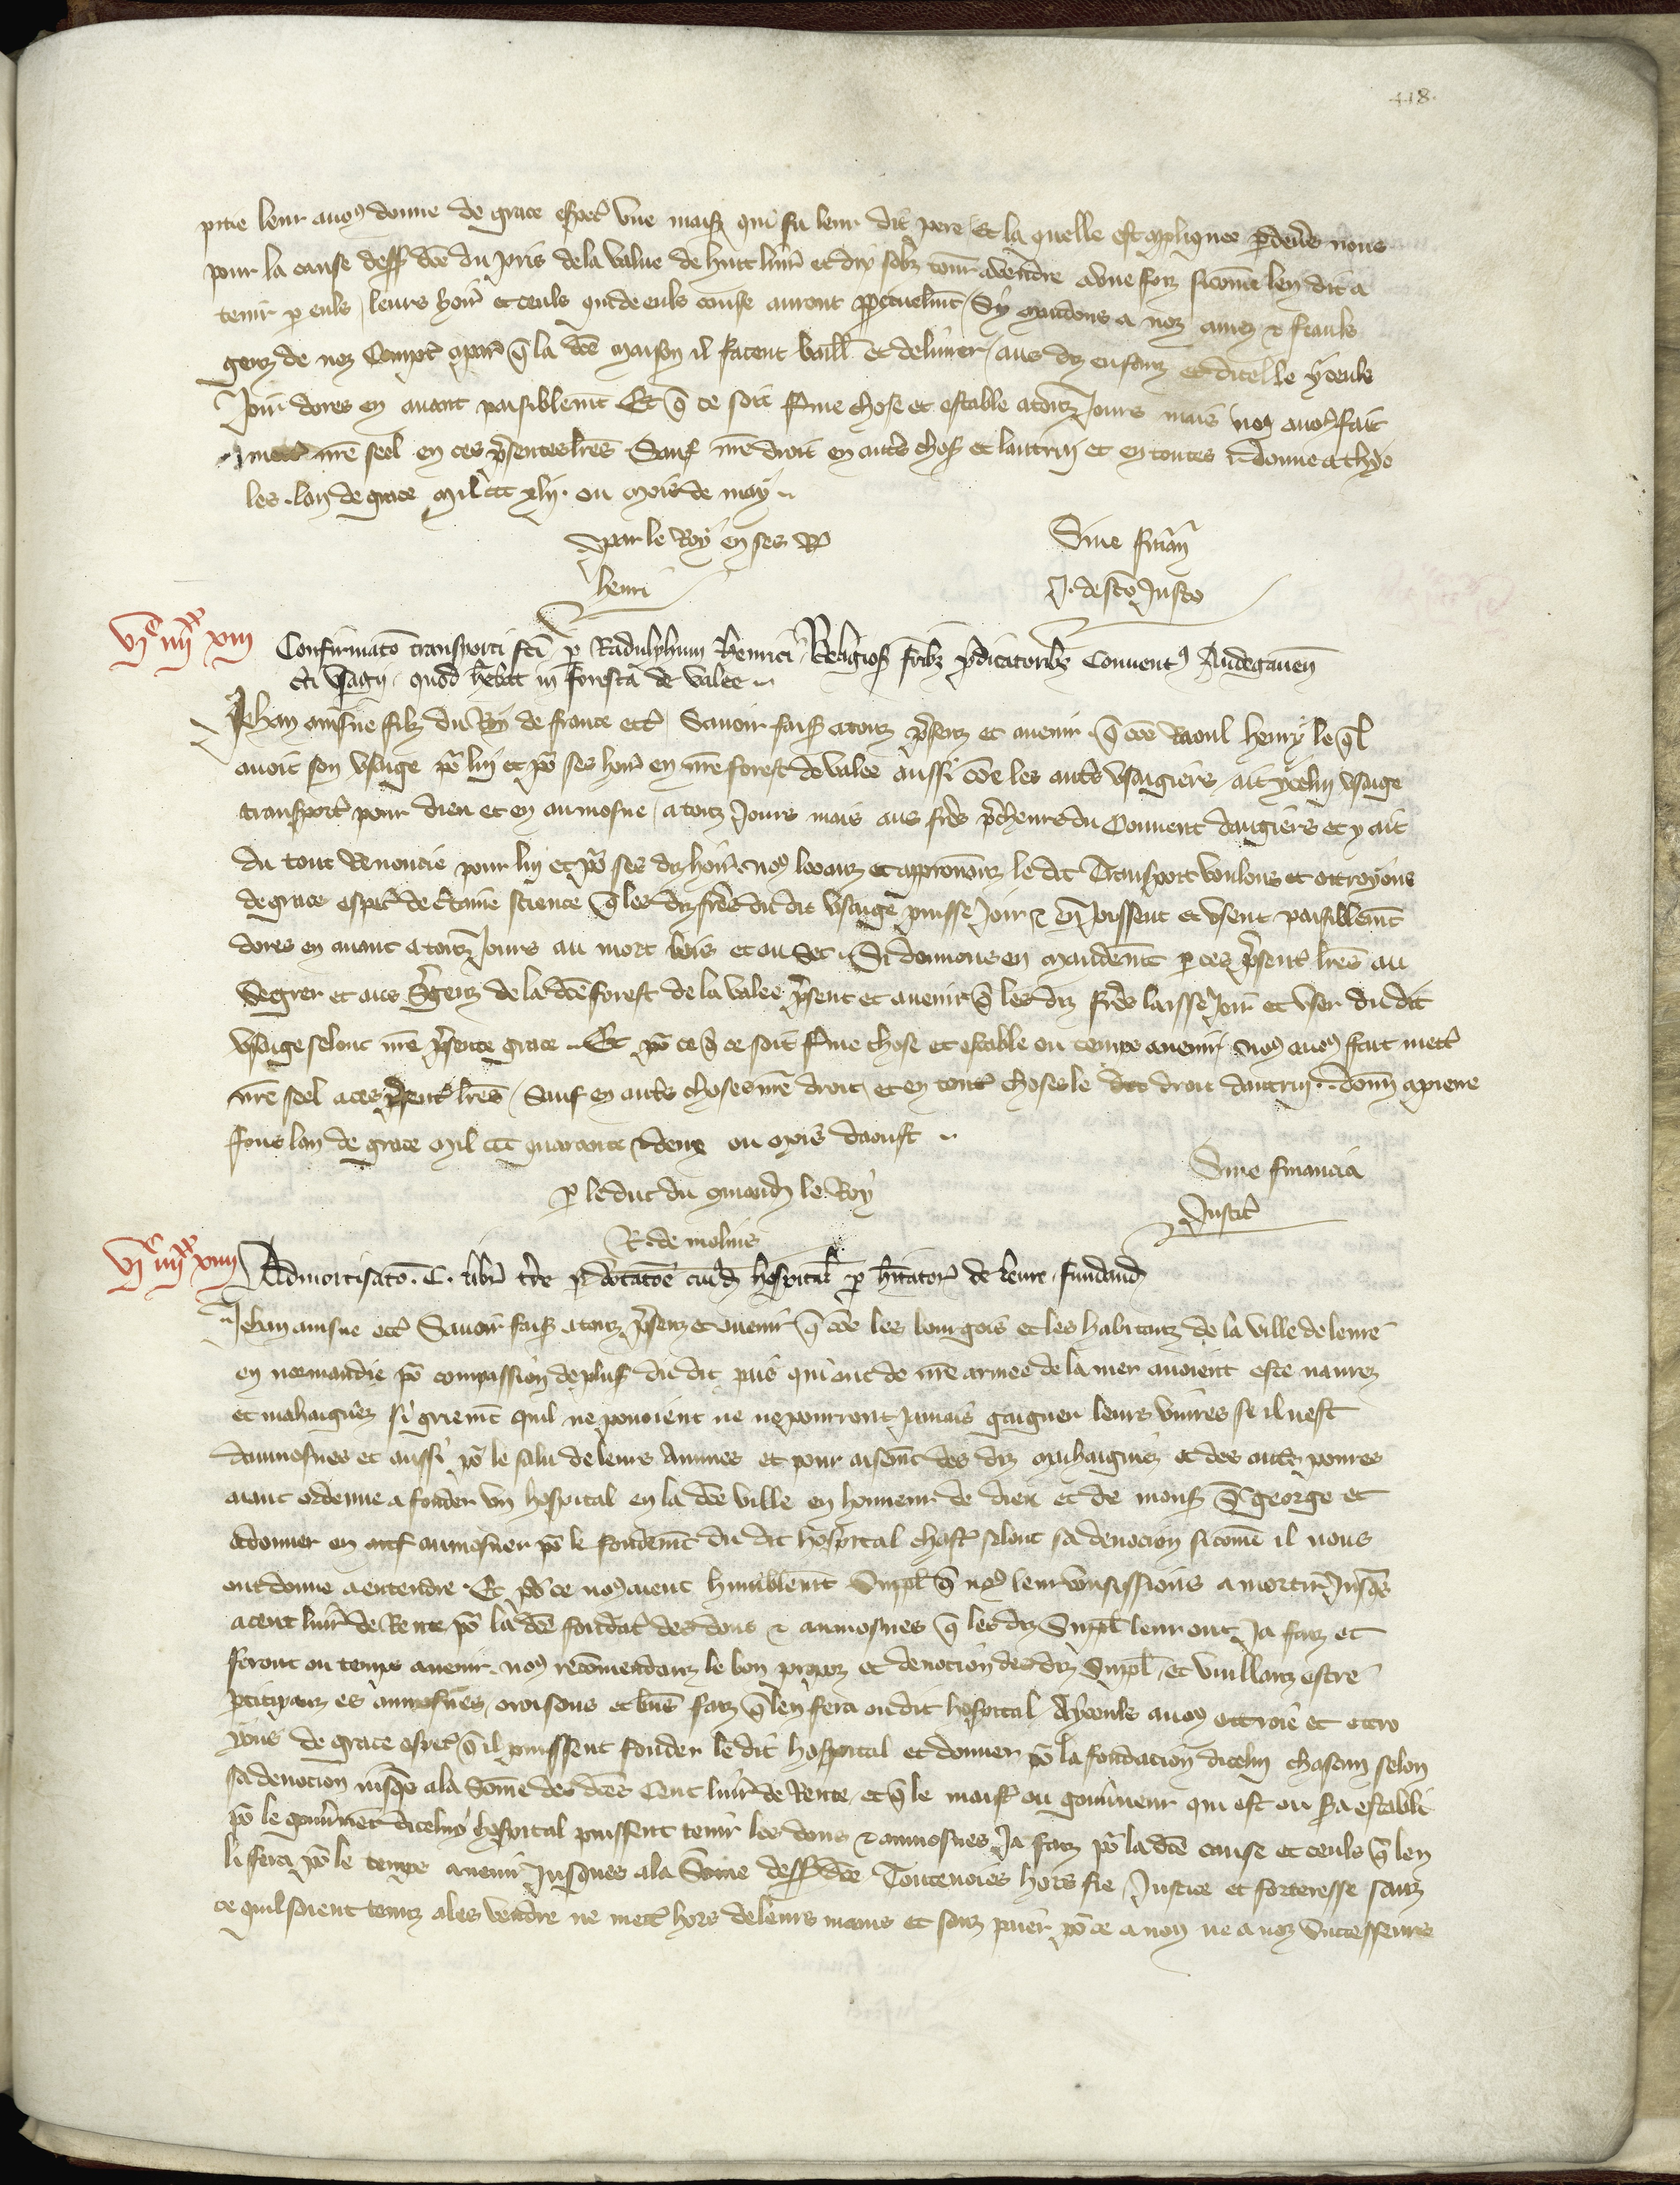 418.
pitie leur auons donne de grace especl vne maison qui fu leur dit pere Et la quelle est apliquee p deuers nous
pour la cause dess dce du pris de la value de huit liur et dix solz tour a vendre a vne foiz sicome len dit a
tenir p euls leurs hoirs et ceuls qui de euls cause auront ppetuelmt / Sy mandons a noz amez & feauls
genz de noz Compt a paris q la dce maison il facent baill et deliurer / aus diz enfanz et dicelle yceuls
Joir dores en auant paisiblemt Et q ce soit ferme chose et estable a touz Jours mais nous auons fait
mettre nre seel en ces psentes lres Sauf nre droit en autres choses et lautruy en toutes donne a
les lan de grace mil ccc xlij ou mois de may
par le Roy en ses
Sine finan
henri
J. de sco Justo
vjc iiijxx xiij
Confirmato transporti fci p Radulphum henrici Religios fribz pdicatoribz Conuentus Andegauen
cti vsagij quod hebat in foresta de valee
Jehan ainsne filz du Roy de france etc Sauoir faison a touz psenz et auenir q come Raoul henry le ql
auoit son vsaige pr luy et pr ses hoirs en nre forest de valee aussi coe les autres vsaigiers / ait ycelui vsaige
transporte pour dieu et en aumosne / a touz Jours mais aus freres prescheurs du Couuent dangiers et y ait
du tout Renoncie pour luy et pr ses diz hoirs nous loanz et approuuanz le dit Transport voulons et ottroyons
de grace especl de ctaine science q les diz freres du dit vsaige puisse Joir & en Joissent et vsent paisiblemt
dores en auant a touz Jours au mort bois et au sec Si donnons en mandemt p ces psent lres au
Segrer et aus Sergenz de la dce forest de la valee psent et auenir q les diz freres laisse Joir et vser du dit
vsaige selonc nre psente grace Et pr ce q ce soit ferme chose et estable ou temps auenir nous auons fait mettre
nre seel a ces psent lres / Sauf en autres choses nre droit et en toutes choses le droit dautruy donn a piere
fons lan de grace mil ccc quarante & deux ou mois daoust
Sine financia
p le duc du mand le Roy
Justic
R. de molins
vjc iiijxx xiiij
Admortisato C. libr tre p dotatoe cuid hospital p hitator de leure fundand
Jehan ainsne etc Sauoir faison a touz psenz et auenir q coe les bourgois et les habitanz de la ville de leure
en normandie pr compassion de plus du dit pais qui ont de nre armee de la mer auoient este naurez
et mahaignez si griemt quil ne pouoient ne ne pourront Jamais gaigner leurs viures se il nest
daumosnes et aussi pr le salu de leurs ames et pour aisemt des diz mahaignez et des autres poures
aiant ordenne a fonder vn hospital en la dce ville en honneur de dieu et de mons s george et
a donner en aumosner pr le fondemt du dit hospital chascun selonc sa deuocion sicome il nous
ont donne a entendre Et pr ce nous aient humblemt Suppl q nous leur vousissions amortir Jusqes
a cent liur de Rente pr la dce fondac des dons & aumosnes q les diz Suppl leur ont Ja faiz et
feront ou temps auenir nous recomendanz le bon propos et deuocion des diz Suppl et vuillanz estre
pticipanz es aumosnes oroisons et biens faiz q len fera ou dit hospital A yceuls auons ottroie et ottro
yons de grace especl q il puissent fonder le dit hospital et donner pr la fondacion dicelui chascun selon
sa deuocion iusqes a la Some des dces Cent liur de Rente et q le maistre ou gouuerneur qui est ou sera establi
pr le gouuernemt dicelui hospital puissent tenir les dons & aumosnes Ja faiz pr la dce cause et ceuls q len
li fera pr le temps auenir Jusques a la Some dess dce Toutenoies hors fie / Justice et forteresse sanz
ce quil soient tenuz a les vendre ne mettre hors de leurs mains et sanz paier pr ce a nous ne a noz successeurs